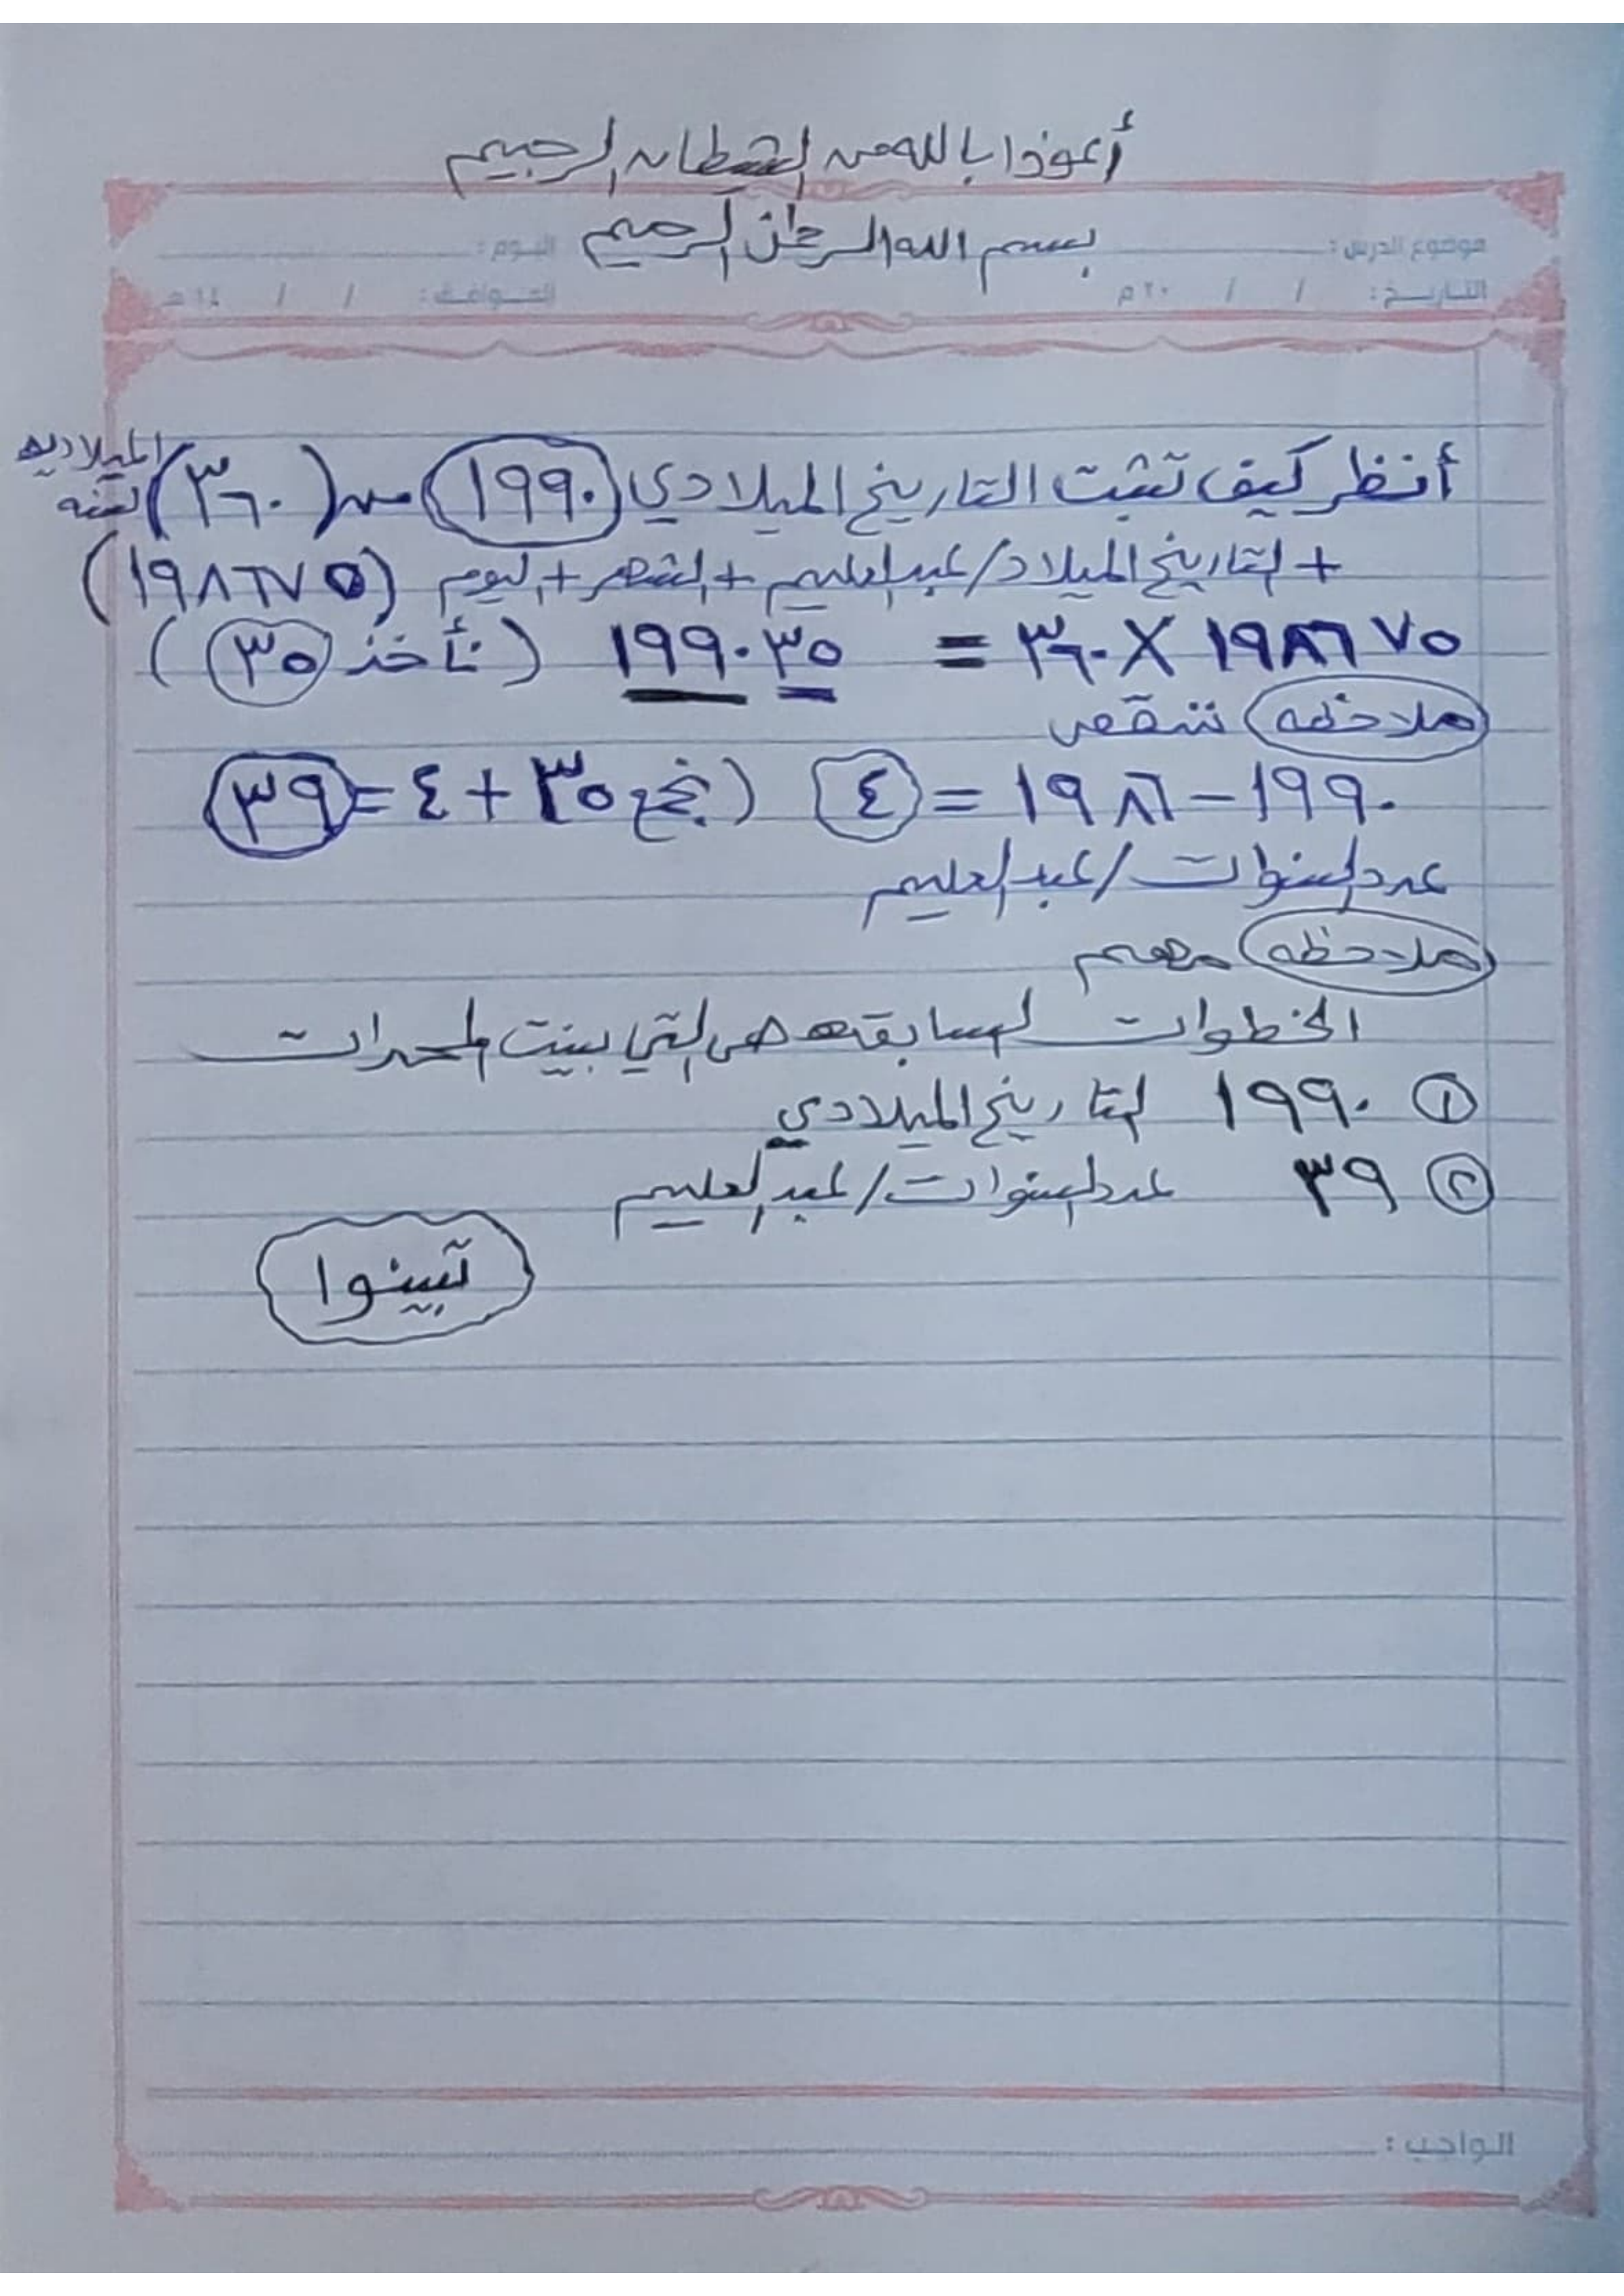 أعوذ بالله من الشيطان الرجيم
بسم الله الرحمن الرحيم
موضوع الدرس : اليوم :
التاريخ : / / ٢٠م الموافق : / / ١٤هـ
أنظر كيف تثبت التاريخ الميلادي (١٩٩٠) من (٣٦٠) لسنه الميلاديه
+ التاريخ الميلاد/عبدالعليم + الشهر + اليوم (١٩٨٦٧٥)
١٩٨٦٧٥ X ٣٦٠ = ١٩٩٠٣٥ (نأخذ ٣٥)
ملاحظه ننقص
١٩٩٠ - ١٩٨٦ = ٤ (نجمع ٣٥ + ٤ = ٣٩
عدد السنوات/عبدالعليم
ملاحظه مهم
الخطوات السابقه هي التي بينت
① ١٩٩٠ التاريخ الميلادي
② ٣٩ عدد السنوات/عبدالعليم
تبينوا
الواجب :